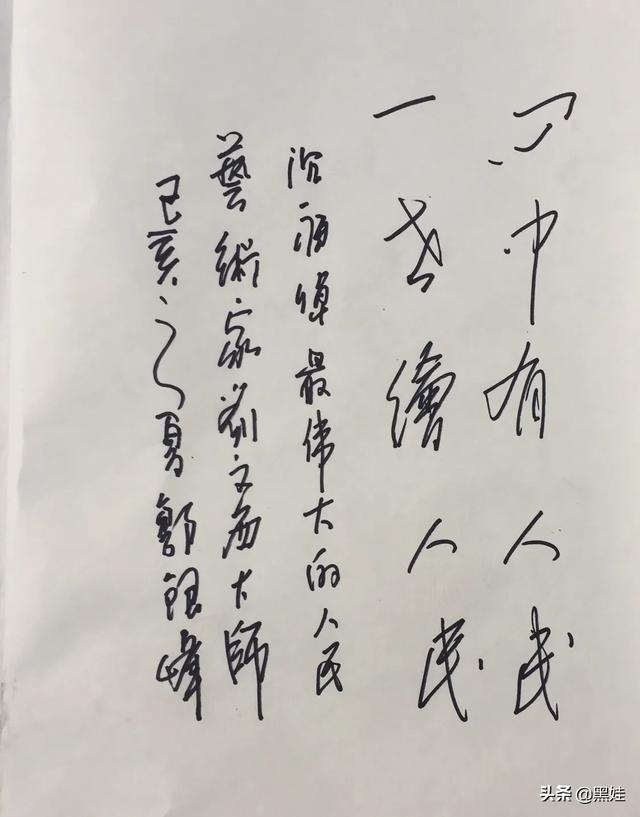 心中有人民
一世繪人民
沉痛悼最伟大的人民
藝術家劉文西大師
己亥之夏郭銀峰
头条 @黑娃